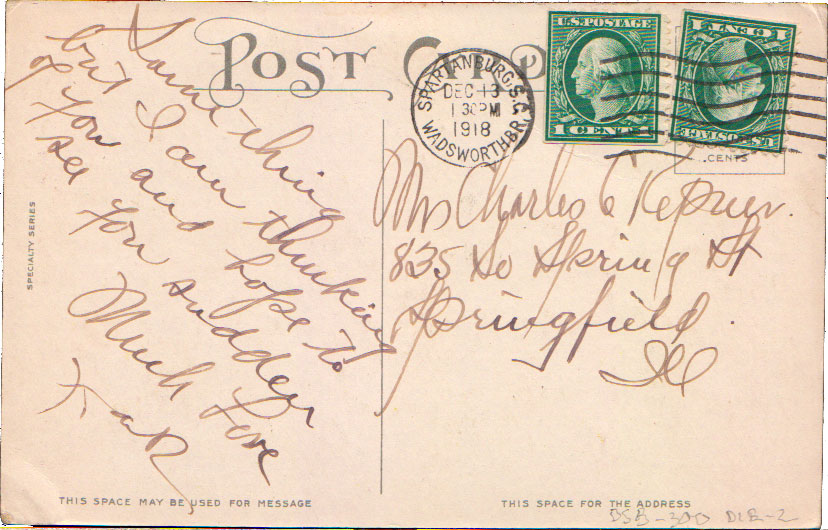 POST CARD
U.S. POSTAGE
1 CENT 1
U.S. POSTAGE
1 CENT 1
SPARTANBURG, S.C.
DEC 13
1 30 PM
1918
WADSWORTH BR.
CENTS
SPECIALTY SERIES
thing
but I am thinking
of you and hope to
see you sudden
Much Love
Mrs Charles E Kepner.
835 So Spring St
Springfield.
Ill
THIS SPACE MAY BE USED FOR MESSAGE
THIS SPACE FOR THE ADDRESS
DSB-300 DLB-2